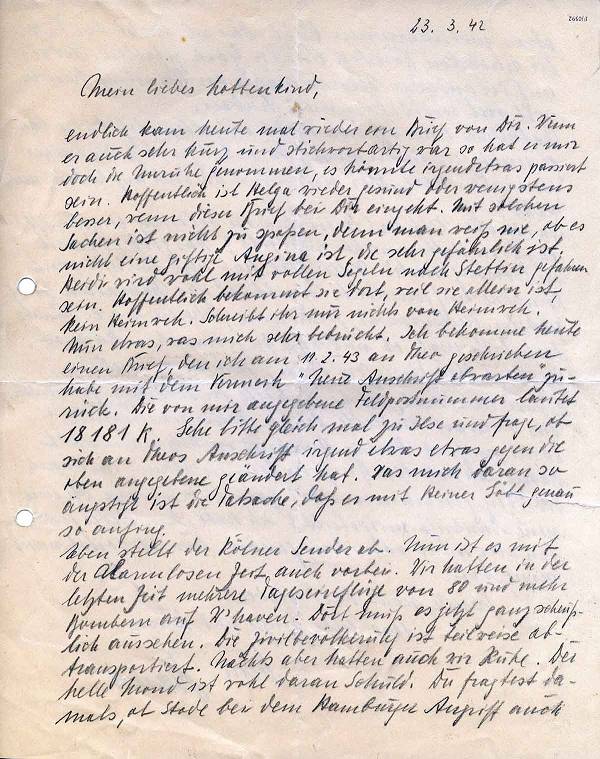 23. 3. 42
Mein liebes Mottenkind,
endlich kam heute mal wieder ein Brief von Dir. Wenn
er auch sehr kurz und stichwortartig war so hat er mir
doch die Unruhe genommen, es könnte irgendetwas passiert
sein. Hoffentlich ist Helga wieder gesund oder wenigstens
besser, wenn dieser Brief bei Dir eingeht. Mit solchen
Sachen ist nicht zu spaßen, denn man weiß nie, ob es
nicht eine giftige Angina ist, die sehr gefährlich ist.
Heidi wird wohl mit vollen Segeln nach Stettin gefahren
sein. Hoffentlich bekommt sie dort, weil sie allein ist,
kein Heimweh. Schreibt ihr nur nichts von Heimweh.
Nun etwas, was mich sehr bedrückt. Ich bekomme heute
einen Brief, den ich am 11.2.43 an Theo geschrieben
habe mit dem Vermerk "Neue Anschrift abwarten" zu-
rück. Die von mir angegebene Feldpostnummer lautet
18181 K. Gehe bitte gleich mal zu Ilse und frage, ob
sich an Theos Anschrift irgend etwas etwas gegen die
oben angegebene geändert hat. Was mich daran so
ängstigt ist die Tatsache, daß es mit Heiner genau
so anfing.
Eben stellt der Kölner Sender ab. Nun ist es mit
der Alarmlosen Zeit auch vorbei. Wir hatten in der
letzten Zeit mehrere Tageseinflüge von 80 und mehr
Bombern auf W'haven. Dort muß es jetzt ganz scheuß-
lich aussehen. Die Zivilbevölkerung ist teilweise ab-
transportiert. Nachts aber hatten auch wir Ruhe. Der
helle Mond ist wohl daran Schuld. Du fragtest da-
mals, ob Stade bei dem Hamburger Angriff auch